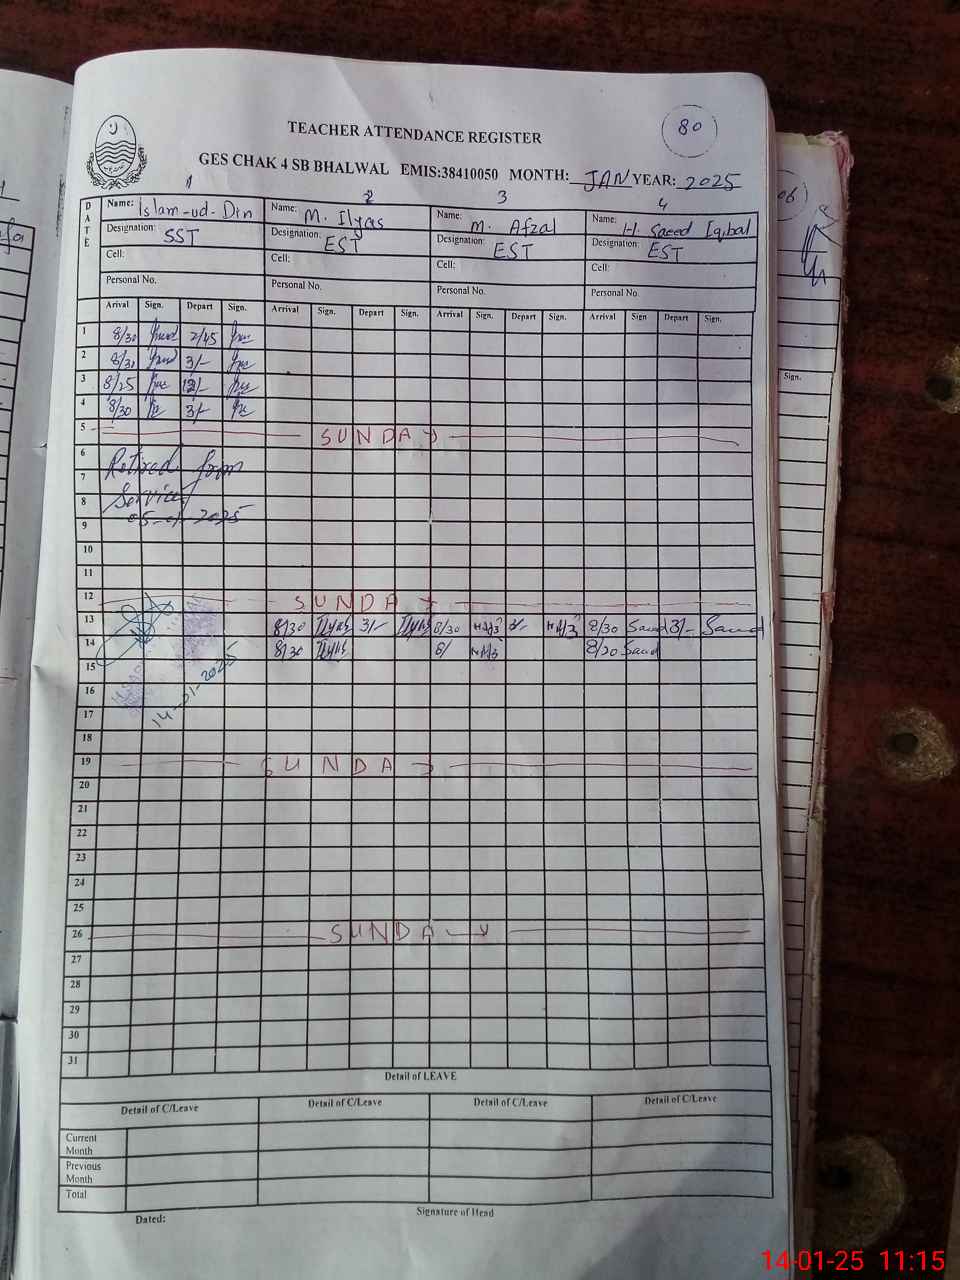 80
TEACHER ATTENDANCE REGISTER
GES CHAK 4 SB BHALWAL EMIS:38410050 MONTH: JAN YEAR: 2025
1 2 3 4
DATE Name: Islam-ud-Din Name: M. Ilyas Name: M. Afzal Name: H. Saeed Iqbal
Designation: SST Designation: EST Designation: EST Designation: EST
Cell: Cell: Cell: Cell:
Personal No. Personal No. Personal No. Personal No.
Arrival Sign. Depart Sign. Arrival Sign. Depart Sign. Arrival Sign. Depart Sign. Arrival Sign. Depart Sign.
1 8/30 2/45
2 8/30 3/-
3 8/25 12/-
4 8/30 3/-
5 SUNDAY
6 Retired form
7
8 Service
9 05-01-2025
10
11
12 SUNDAY
13 8/30 Ilyas 3/- Ilyas 8/30 3/- 8/30 Saeed 3/- Saeed
14 8/30 Ilyas 8/ 8/30 Saeed
15
16 14-01-2025
17
18
19 SUNDAY
20
21
22
23
24
25
26 SUNDAY
27
28
29
30
31
Detail of LEAVE
Detail of C/Leave Detail of C/Leave Detail of C/Leave Detail of C/Leave
Current Month
Previous Month
Total
Dated: Signature of Head
Sign.
14-01-25 11:15